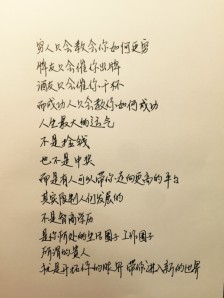 穷人只会教会你如何更穷
牌友只会催你出牌
酒友只会催你干杯
而成功人只会教你如何成功
人生最大的运气
不是捡钱
也不是中奖
而是有人可以带你走向更高的平台
其实限制人们发展的
不是智商学历
是你所处的生活圈子工作圈子
所谓的贵人
就是开拓你的眼界带你进入新的世界